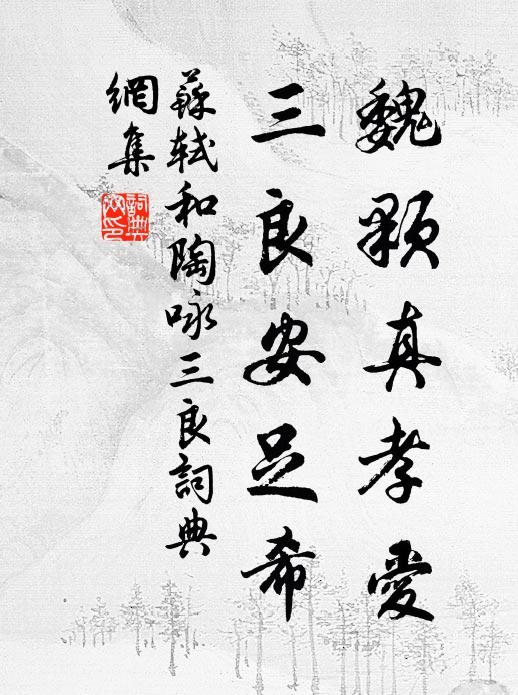 魏顆真孝愛
三良安足希
蘇軾和陶咏三良詞典
網集
詞典
網印